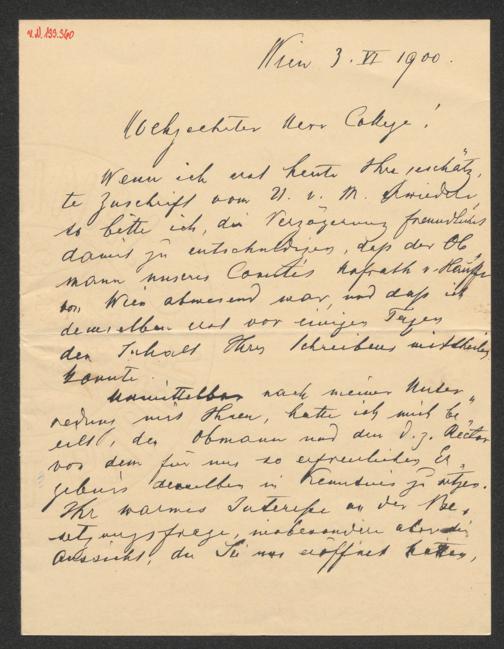 V.N. 133.360
Wien 3. VI 1900.
Hochgeehrter Herr College!
Wenn ich erst heute Ihre geschätz,
te Zuschrift vom 21. v. M. erwiedere,
so bitte ich, die Verzögerung freundlichst
damit zu entschuldigen, daß der Ob,
mann unseres Comités Hofrath v.
von Wien abwesend war, und daß ich
demselben erst vor einigen Tagen
den Inhalt Ihres Schreibens mittheilen
konnte.
Unmittelbar nach meiner Unter,
redung mit Ihnen, hatte ich mich be,
eilt, den Obmann und den d. z. Rector
von dem für uns so erfreulichen Er,
gebnis derselben in Kenntnis zu setzen.
Ihr warmes Interesse an der Be,
setzungsfrage, insbesondere aber die
Aussicht, die Sie uns eröffnet hatten,